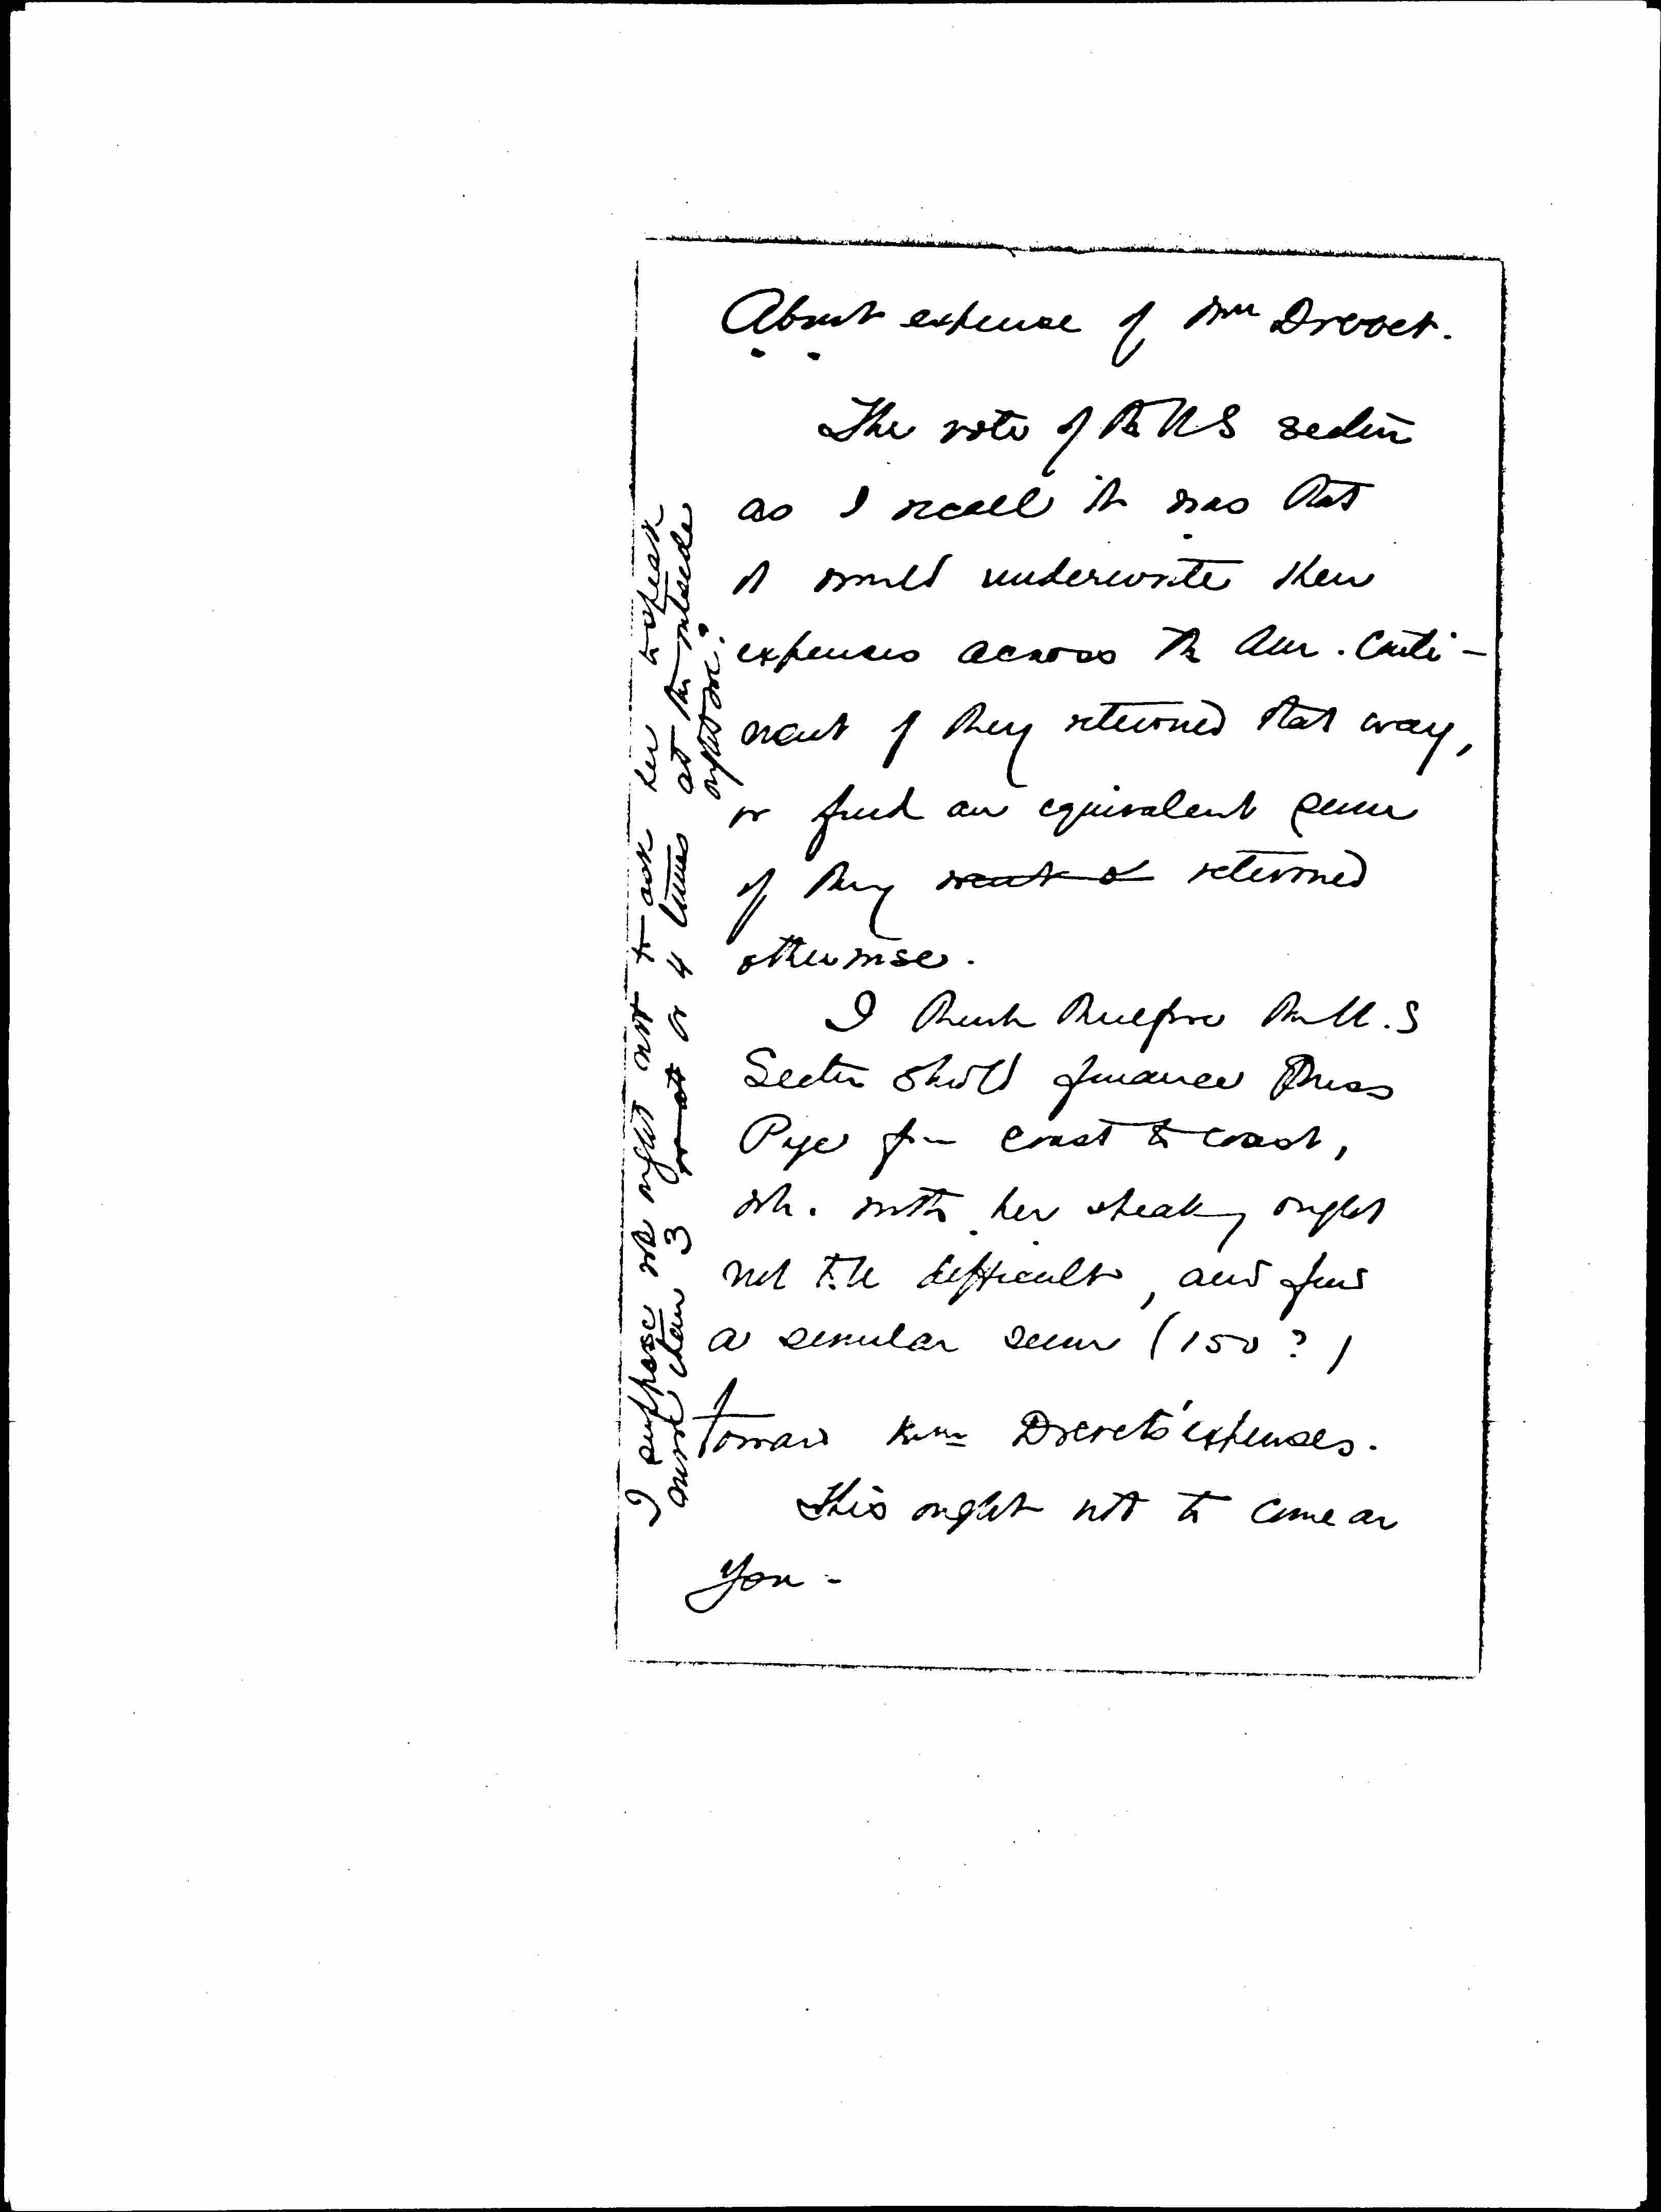 About expense of Mme Drevet.
The vote of the U S section
as I recall it was that
it would underwrite their
expenses across the Am. Conti-
nent if they returned that way,
or find an equivalent sum
if they went & returned
otherwise.
I think therefore the U.S
Section should finance Miss
Pye from coast to coast,
wh. with her speaking ought
not to be difficult, and find
a similar sum (150?)
toward Mme Drevet's expenses.
This ought not to come on
you -
I suppose we ought not to ask her to speak
more than 3 or 4 times at the outside
ought we?